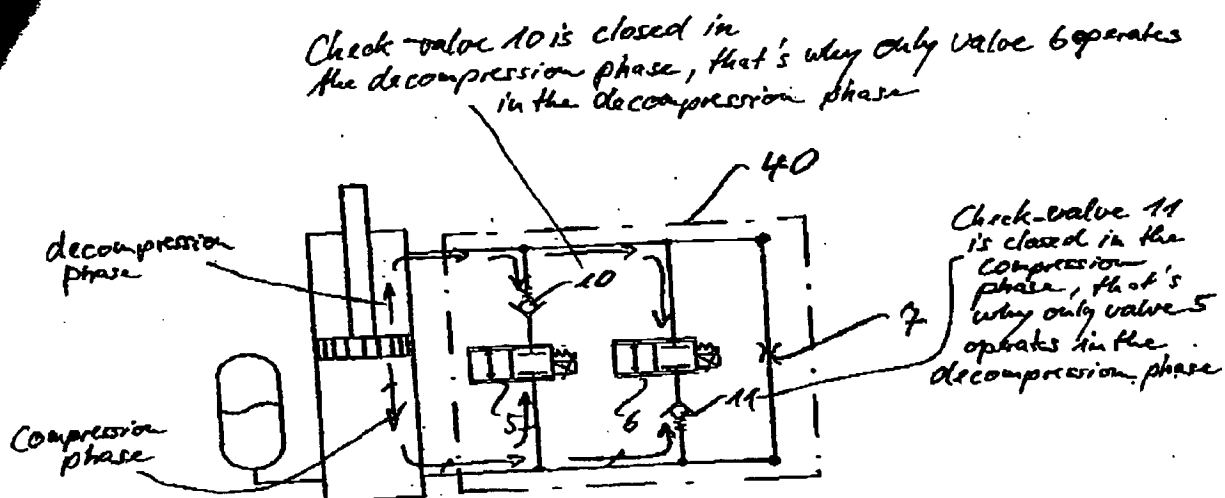 Check-valve 10 is closed in
the decompression phase, that's why only valve 6 operates
in the decompression phase
40
decompression
phase
10
Check-valve 11
is closed in the
compression
phase, that's
why only valve 5
operates in the
decompression phase
7
5
6
11
Compression
phase